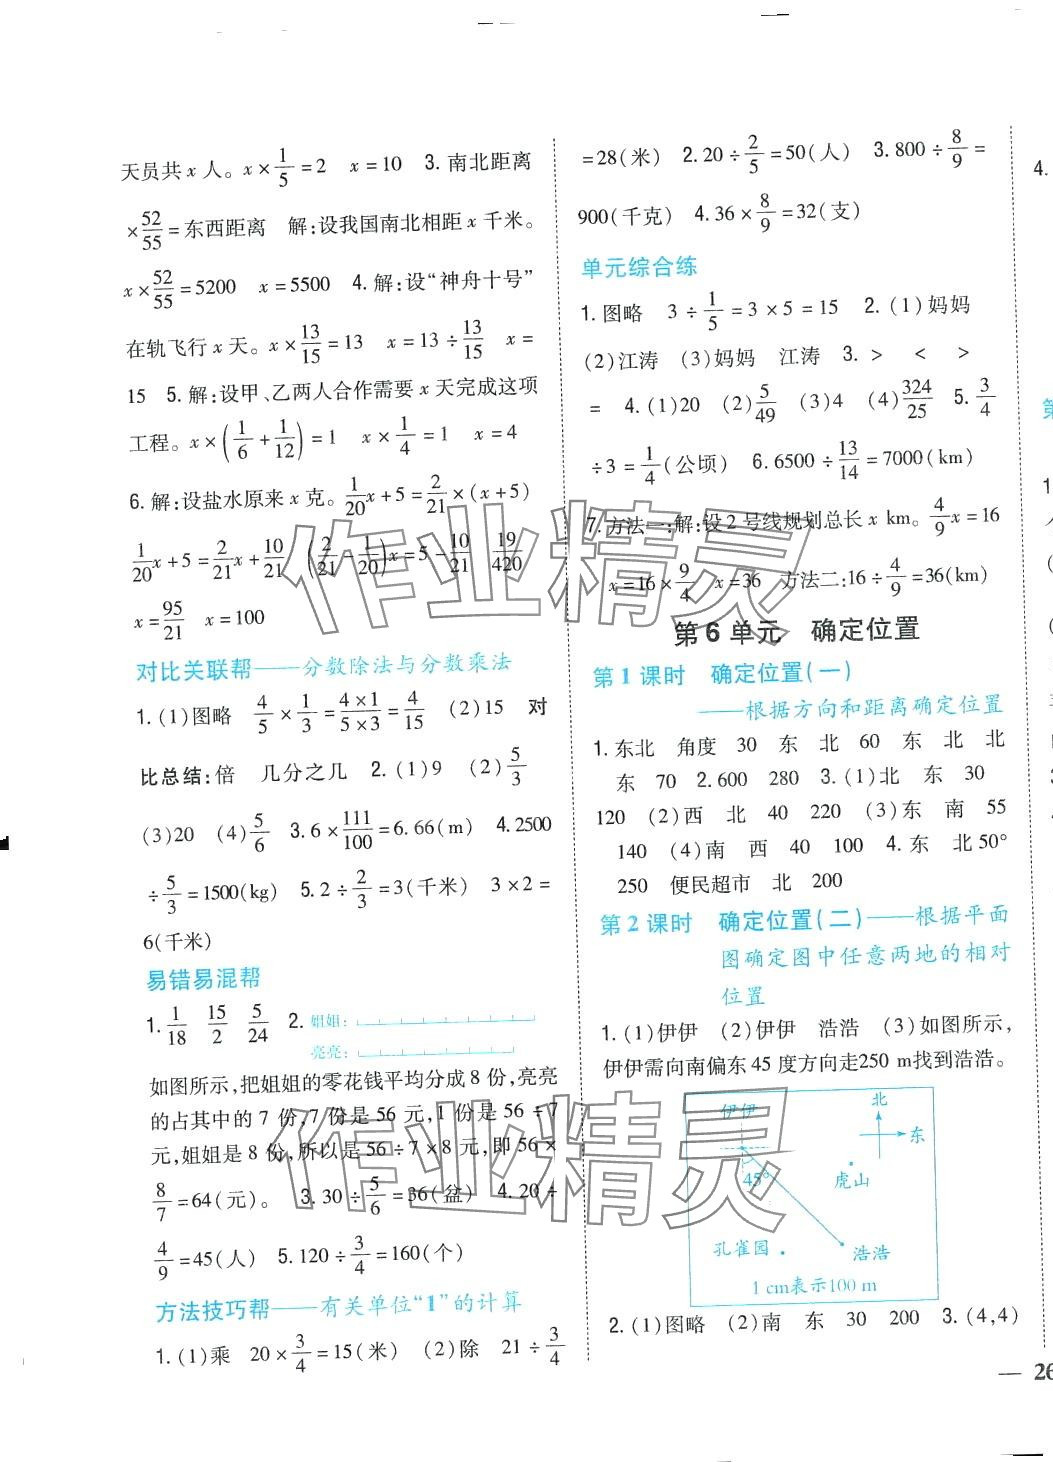 天员共 x 人。x × 1/5 = 2　x = 10　3. 南北距离
× 52/55 = 东西距离　解:设我国南北相距 x 千米。
x × 52/55 = 5200　x = 5500　4. 解:设“神舟十号”
在轨飞行 x 天。x × 13/15 = 13　x = 13 ÷ 13/15　x =
15　5. 解:设甲、乙两人合作需要 x 天完成这项
工程。x × (1/6 + 1/12) = 1　x × 1/4 = 1　x = 4
6. 解:设盐水原来 x 克。1/20 x + 5 = 2/21 × (x + 5)
1/20 x + 5 = 2/21 x + 10/21　(2/21 - 1/20) x = 5 - 10/21　19/420
x = 95/21　x = 100
对比关联帮——分数除法与分数乘法
1. (1)图略　4/5 × 1/3 = 4×1/5×3 = 4/15　(2)15　对
比总结:倍　几分之几　2. (1)9　(2)5/3
(3)20　(4)5/6　3. 6 × 111/100 = 6.66(m)　4. 2500
÷ 5/3 = 1500(kg)　5. 2 ÷ 2/3 = 3(千米)　3 × 2 =
6(千米)
易错易混帮
1. 1/18　15/2　5/24　2. 姐姐:
亮亮:
如图所示,把姐姐的零花钱平均分成 8 份,亮亮
的占其中的 7 份,7 份是 56 元,1 份是 56 ÷ 7
元,姐姐是 8 份,所以是 56 ÷ 7 × 8 元,即 56 ×
8/7 = 64(元)。　3. 30 ÷ 5/6 = 36(盆)　4. 20 ÷
4/9 = 45(人)　5. 120 ÷ 3/4 = 160(个)
方法技巧帮——有关单位“1”的计算
1. (1)乘　20 × 3/4 = 15(米)　(2)除　21 ÷ 3/4
= 28(米)　2. 20 ÷ 2/5 = 50(人)　3. 800 ÷ 8/9 =
900(千克)　4. 36 × 8/9 = 32(支)
单元综合练
1. 图略　3 ÷ 1/5 = 3 × 5 = 15　2. (1)妈妈
(2)江涛　(3)妈妈　江涛　3. >　<　>
=　4. (1)20　(2)5/49　(3)4　(4)324/25　5. 3/4
÷ 3 = 1/4(公顷)　6. 6500 ÷ 13/14 = 7000(km)
7. 方法一:解:设 2 号线规划总长 x km。4/9 x = 16
x = 16 × 9/4　x = 36　方法二:16 ÷ 4/9 = 36(km)
第 6 单元　确定位置
第 1 课时　确定位置(一)
——根据方向和距离确定位置
1. 东北　角度　30　东　北　60　东　北　北
东　70　2. 600　280　3. (1)北　东　30
120　(2)西　北　40　220　(3)东　南　55
140　(4)南　西　40　100　4. 东　北 50°
250　便民超市　北　200
第 2 课时　确定位置(二)——根据平面
图确定图中任意两地的相对
位置
1. (1)伊伊　(2)伊伊　浩浩　(3)如图所示,
伊伊需向南偏东 45 度方向走250 m找到浩浩。
伊伊　北
东
45°　虎山
孔雀园　浩浩
1 cm表示100 m
2. (1)图略　(2)南　东　30　200　3. (4,4)
4.
1
— 26
作业精灵
作业精灵